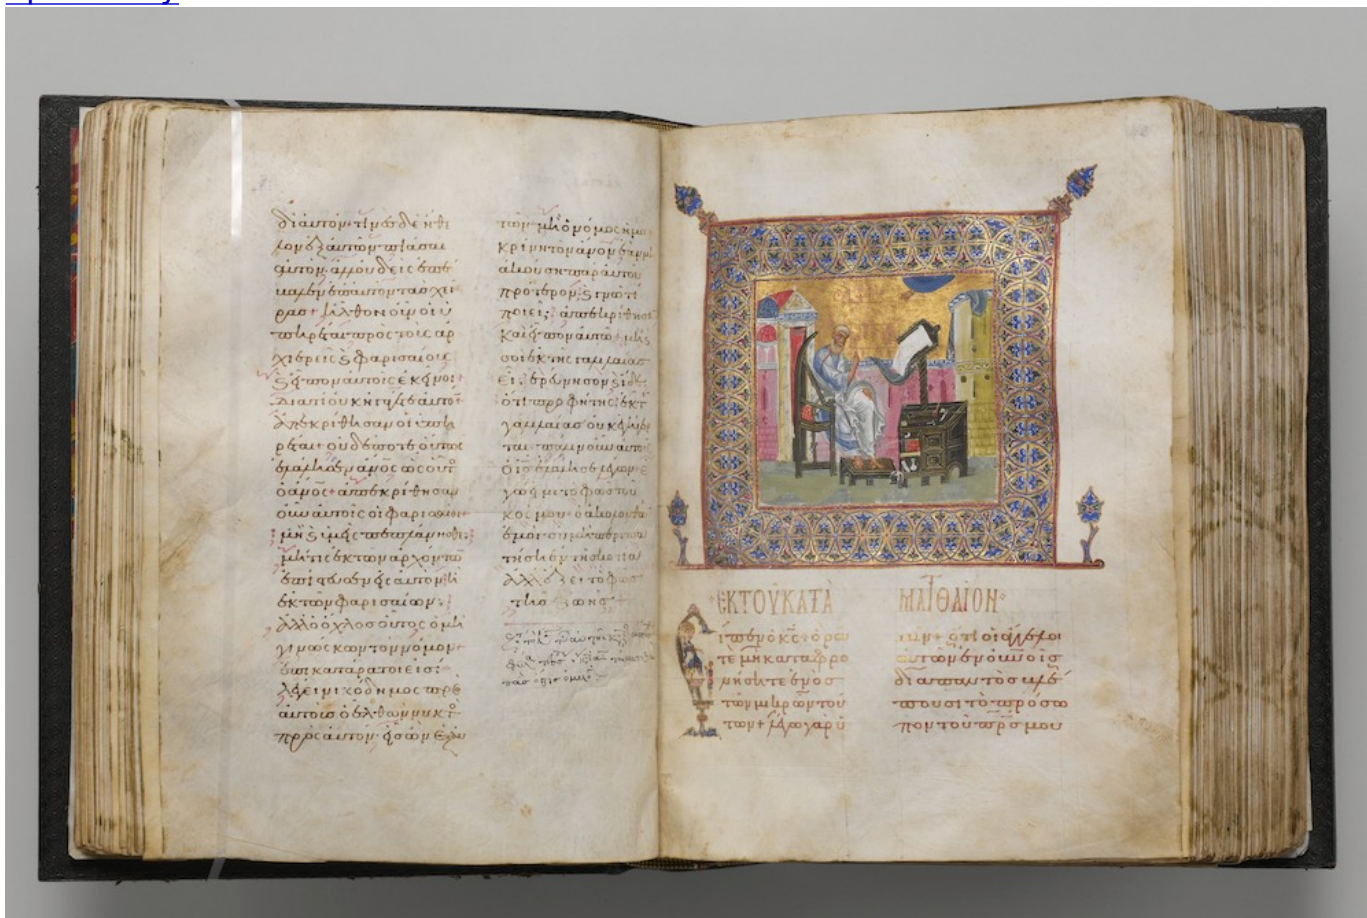 δι αὐτον· τινὲς δὲ ἤθε
λον ἐξ αὐτῶν πιάσαι
αὐτον· ἀλλ οὐδεὶς ἐπέ
βαλεν ἐπ αὐτὸν τὰς χεῖ
ρας + ἦλθον οὖν οἱ ὑ
πηρέται πρὸς τοὺς ἀρ
χιερεῖς ϗ φαρισαίους
ϗ εἶπον αὐτοῖς ἐκεῖνοι·
διατί οὐκ ἠγάγετε αὐτόν·
ἀπεκρίθησαν οἱ ὑπη
ρέται· οὐδέποτε οὕτως
ἐλάλησεν ἄνος ὡς οὗτος
ὁ ἄνος· ἀπεκρίθησαν
οὖν αὐτοῖς οἱ φαρισαῖοι·
μὴ ϗ ὑμεῖς πεπλάνησθε;
μή τις ἐκ τῶν ἀρχόντων
ἐπίστευσεν εἰς αὐτὸν ἢ
ἐκ τῶν φαρισαίων;
ἀλλ ὁ ὄχλος οὗτος ὁ μὴ
γινώσκων τὸν νόμον·
ἐπικατάρατοί εἰσι·
λέγει νικόδημος πρὸς
αὐτοὺς ὁ ἐλθὼν νυκτὸς
πρὸς αὐτὸν· εἷς ὢν ἐξ αὐ
τῶν· μὴ ὁ νόμος ἡμῶν
κρίνει τὸν ἄνον ἐὰν μὴ
ἀκούσῃ παρ αὐτοῦ
πρότερον, ϗ γνῷ τί
ποιεῖ; ἀπεκρίθησαν
καὶ εἶπον αὐτῷ· μὴ ϗ
σὺ ἐκ τῆς γαλιλαίας
εἶ; ἐρεύνησον ϗ ἴδε·
ὅτι προφήτης ἐκ τῆς
γαλιλαίας οὐκ ἐγήγερ
ται· πάλιν οὖν αὐτοῖς
ὁ ις ἐλάλησε λέγων· ἐ
γώ εἰμι τὸ φῶς τοῦ
κόσμου· ὁ ἀκολουθῶν
ἐμοὶ· οὐ μὴ περιπατή
σῃ ἐν τῇ σκοτίᾳ
ἀλλ ἕξει τὸ φῶς
τῆς ζωῆς
ΕΚ ΤΟΥ ΚΑΤΑ ΜΑΤΘΑΙΟΝ
Εἶπεν ὁ κς· ὁρᾶ
τε μὴ καταφρο
νήσητε ἑνὸς
τῶν μικρῶν τού
των + λέγω γὰρ ὑ
μῖν· ὅτι οἱ ἄγγελοι
αὐτῶν ἐν οὐνοῖς
διαπαντὸς βλέ
πουσι τὸ πρόσω
πον τοῦ πρς μου